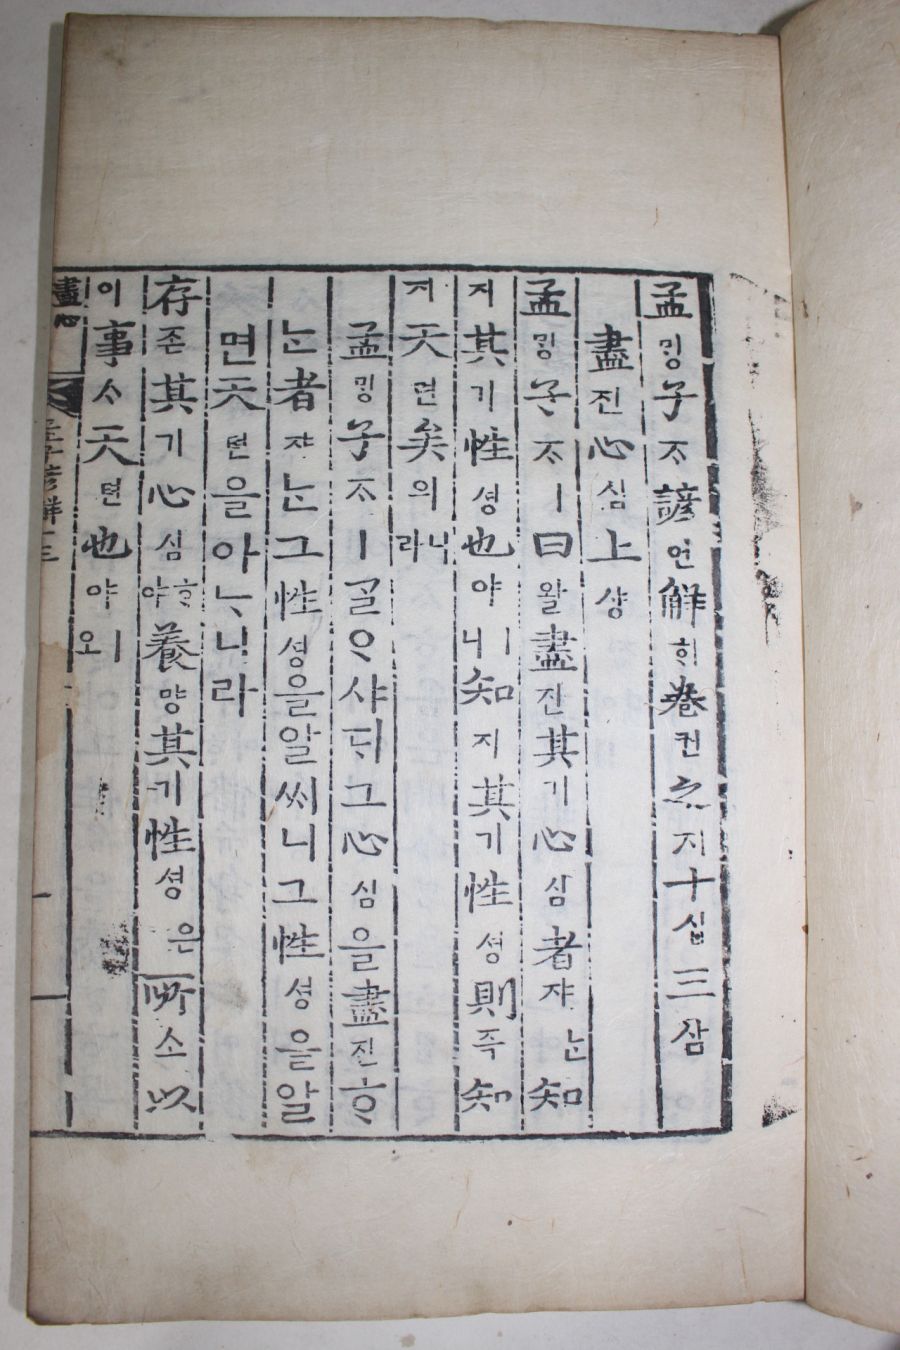 孟ᄆᆡᆼ子ᄌᆞ諺언解ᄒᆡ卷권之지十십三삼
盡진心심上샹
孟ᄆᆡᆼ子ᄌᆞㅣ曰왈盡진其기心심者쟈ᄂᆞᆫ知
지其기性셩也야ㅣ니知지其기性셩則즉知
지天텬矣의니라
孟ᄆᆡᆼ子ᄌᆞㅣᄀᆞᆯᄋᆞ샤ᄃᆡ그心심을盡진ᄒᆞ
ᄂᆞᆫ者쟈ᄂᆞᆫ그性셩을알씨니그性셩을알
면天텬을아ᄂᆞ니라
存존其기心심ᄒᆞ야養양其기性셩은所소以
이事ᄉᆞ天텬也야ㅣ오
盡心 孟子諺解十三